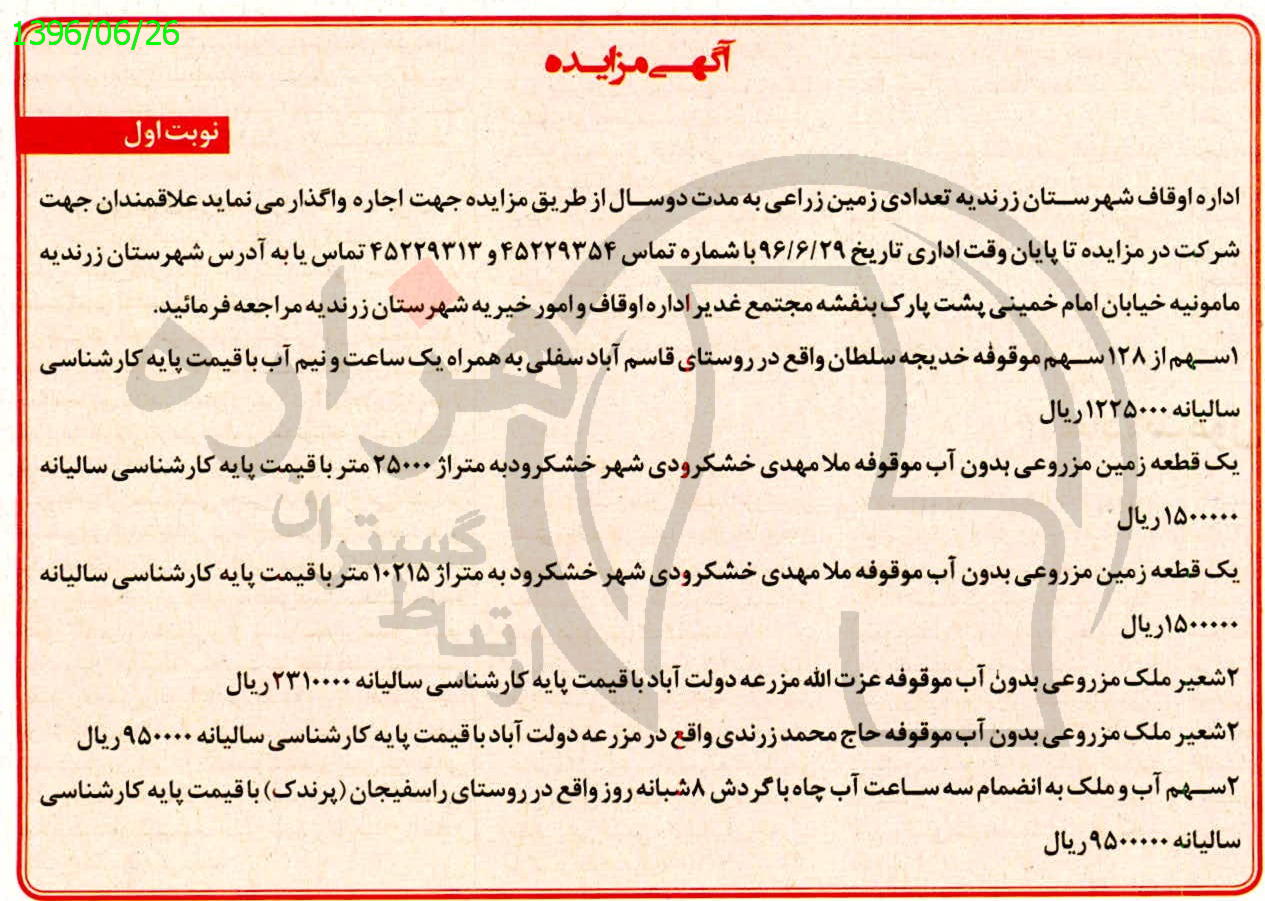 1396/06/26
آگهی مزایده
نوبت اول
اداره اوقاف شهرستان زرندیه تعدادی زمین زراعی به مدت دوسال از طریق مزایده جهت اجاره واگذار می نماید علاقمندان جهت
شرکت در مزایده تا پایان وقت اداری تاریخ ۹۶/۶/۲۹ با شماره تماس ۴۵۲۲۹۳۵۴ و ۴۵۲۲۹۳۱۳ تماس یا به آدرس شهرستان زرندیه
مامونیه خیابان امام خمینی پشت پارک بنفشه مجتمع غدیر اداره اوقاف و امور خیریه شهرستان زرندیه مراجعه فرمائید.
۱سهم از ۱۲۸ سهم موقوفه خدیجه سلطان واقع در روستای قاسم آباد سفلی به همراه یک ساعت و نیم آب با قیمت پایه کارشناسی
سالیانه ۱۲۲۵۰۰۰ریال
یک قطعه زمین مزروعی بدون آب موقوفه ملا مهدی خشکرودی شهر خشکرودبه متراژ ۲۵۰۰۰ متر با قیمت پایه کارشناسی سالیانه
۱۵۰۰۰۰۰ریال
یک قطعه زمین مزروعی بدون آب موقوفه ملا مهدی خشکرودی شهر خشکرود به متراژ ۱۰۲۱۵ متر با قیمت پایه کارشناسی سالیانه
۱۵۰۰۰۰۰ریال
۲شعیر ملک مزروعی بدون آب موقوفه عزت الله مزرعه دولت آباد با قیمت پایه کارشناسی سالیانه ۲۳۱۰۰۰۰ ریال
۲شعیر ملک مزروعی بدون آب موقوفه حاج محمد زرندی واقع در مزرعه دولت آباد با قیمت پایه کارشناسی سالیانه ۹۵۰۰۰۰ریال
۲سهم آب و ملک به انضمام سه ساعت آب چاه با گردش ۸شبانه روز واقع در روستای راسفیجان (پرندک) با قیمت پایه کارشناسی
سالیانه ۹۵۰۰۰۰۰ریال
هزاره
ارتباط گستران